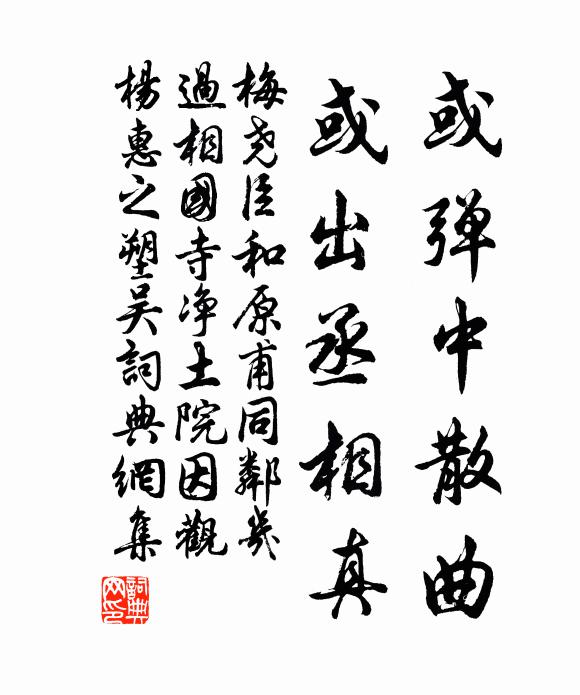 或弹中散曲
或出丞相真
梅尧臣和原甫同鄰幾
過相國寺净土院因觀
楊惠之塑吴詞典網集
詞典
网印